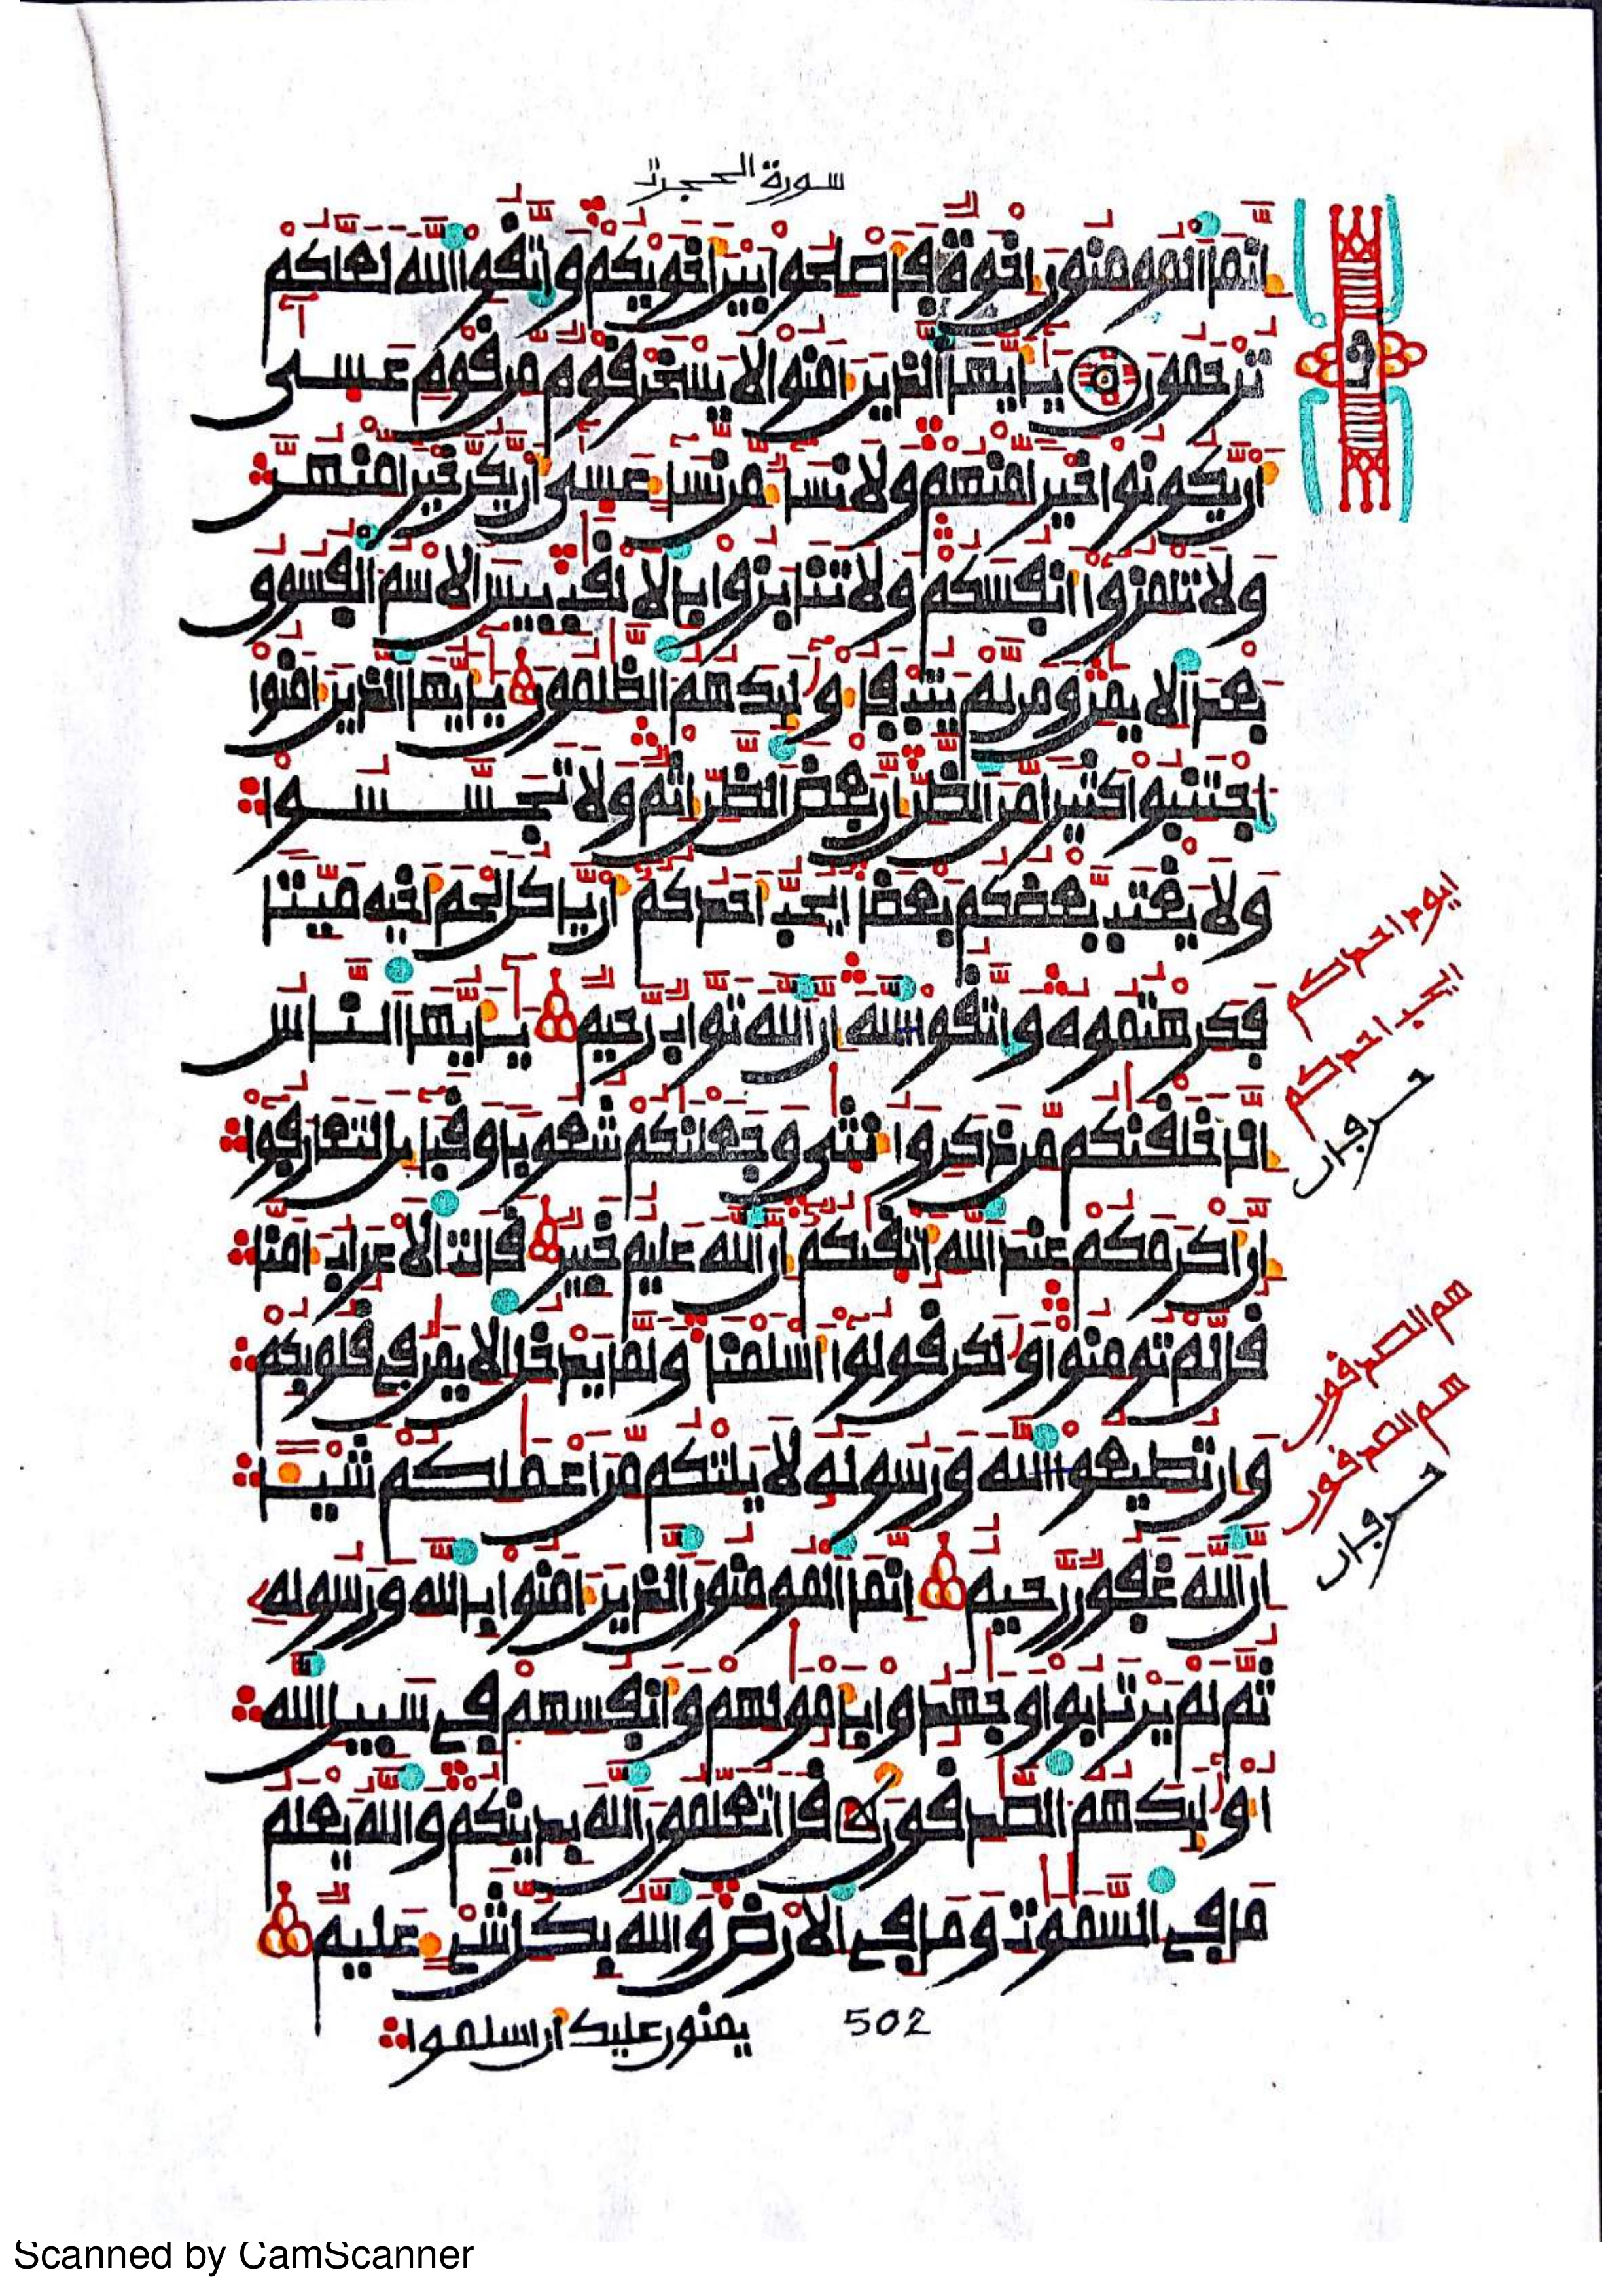 سورة الحجرت
إنما المومنون إخوة فأصلحوا بين أخويكم واتقوا الله لعلكم
ترحمون يأيها الذين ءامنوا لا يسخر قوم من قوم عسى
أن يكونوا خيرا منهم ولا نساء من نساء عسى أن يكن خيرا منهن
ولا تلمزوا أنفسكم ولا تنابزوا بالالقب بيس الاسم الفسوق
بعد الايمن ومن لم يتب فأوليك هم الظلمون يأيها الذين ءامنوا
اجتنبوا كثيرا من الظن إن بعض الظن إثم ولا تجسسوا
ولا يغتب بعضكم بعضا أيحب أحدكم أن ياكل لحم أخيه ميتا
فكرهتموه واتقوا الله إن الله تواب رحيم يأيها الناس
إنا خلقنكم من ذكر وأنثى وجعلنكم شعوبا وقبايل لتعارفوا
إن أكرمكم عند الله أتقىكم إن الله عليم خبير قالت الاعراب ءامنا
قل لم تومنوا ولكن قولوا أسلمنا ولما يدخل الايمن في قلوبكم
وإن تطيعوا الله ورسوله لا يلتكم من أعملكم شيئا
إن الله غفور رحيم إنما المومنون الذين ءامنوا بالله ورسوله
ثم لم يرتابوا وجهدوا بأمولهم وأنفسهم في سبيل الله
أوليك هم الصدقون قل أتعلمون الله بدينكم والله يعلم
ما في السموت وما في الارض والله بكل شيء عليم
يمنون عليك أن اسلموا
502
ايود احدكم
ايحب احدكم
حرفان
هم الصدقون
هم الصدقون
حرفان
Scanned by CamScanner